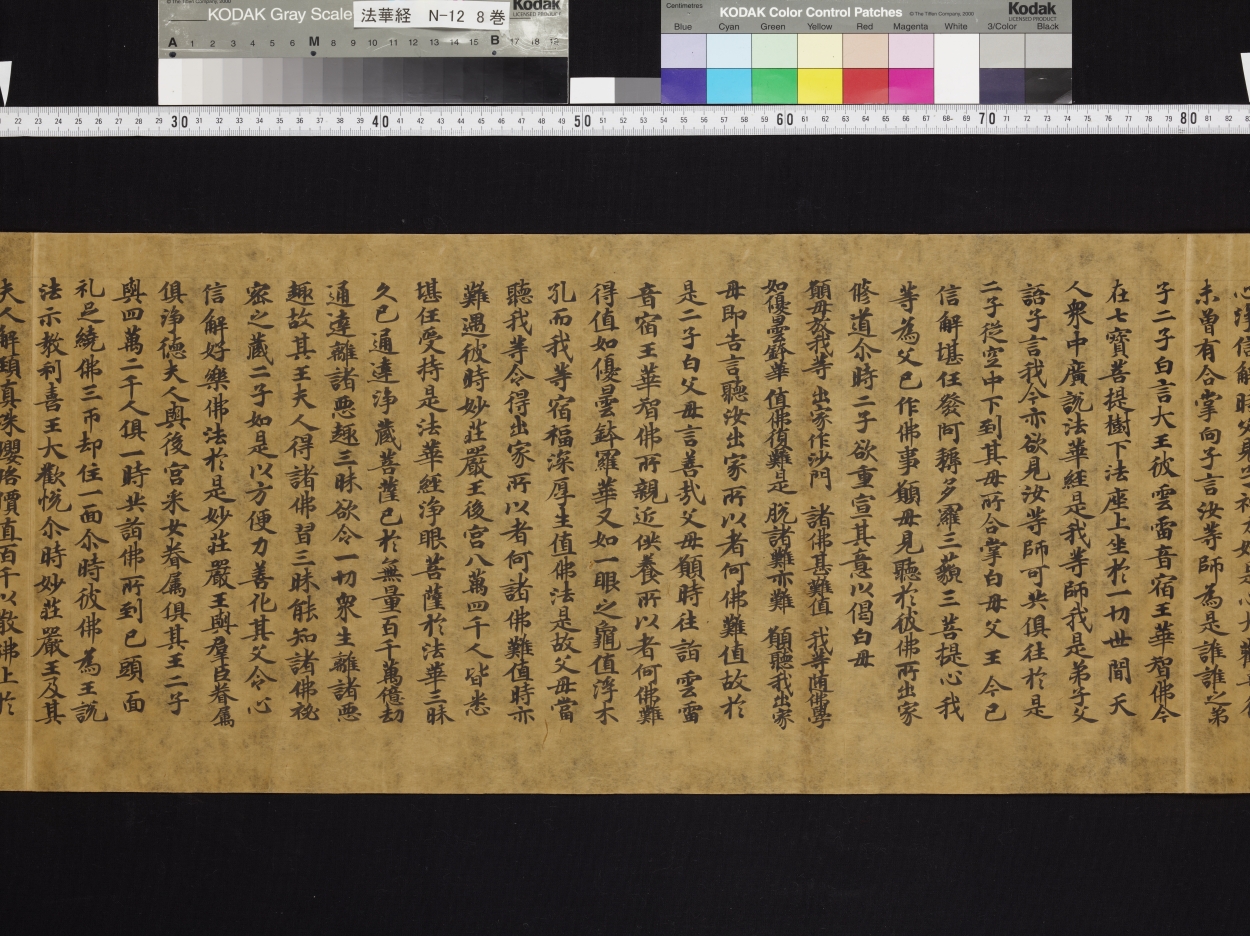 © The Tiffen Company, 2000
KODAK Gray Scale
法華経　N-12　8巻
Kodak
LICENSED PRODUCT
A 1 2 3 4 5 6 M 8 9 10 11 12 13 14 15 B 17 18 19
Centimetres
KODAK Color Control Patches
© The Tiffen Company, 2000
Kodak
LICENSED PRODUCT
Blue Cyan Green Yellow Red Magenta White 3/Color Black
22 23 24 25 26 27 28 29 30 31 32 33 34 35 36 37 38 39 40 41 42 43 44 45 46 47 48 49 50 51 52 53 54 55 56 57 58 59 60 61 62 63 64 65 66 67 68 69 70 71 72 73 74 75 76 77 78 79 80 81 82
未曽有合掌向子言汝等師為是誰誰之弟
子二子白言大王彼雲雷音宿王華智佛今
在七寶菩提樹下法座上坐於一切世間天
人衆中廣說法華經是我等師我是弟子父
語子言我今亦欲見汝等師可共俱往於是
二子從空中下到其母所合掌白母父王今已
信解堪任發阿耨多羅三藐三菩提心我
等為父已作佛事願母見聽於彼佛所出家
修道尒時二子欲重宣其意以偈白母
願母放我等　出家作沙門　諸佛甚難值　我等隨佛學
如優曇鉢華　值佛復難是　脫諸難亦難　願聽我出家
母即告言聽汝出家所以者何佛難值故於
是二子白父母言善哉父母願時往詣雲雷
音宿王華智佛所親近供養所以者何佛難
得值如優曇鉢羅華又如一眼之龜值浮木
孔而我等宿福深厚生值佛法是故父母當
聽我等令得出家所以者何諸佛難值時亦
難遇彼時妙莊嚴王後宮八萬四千人皆悉
堪任受持是法華經淨眼菩薩於法華三昧
久已通達淨藏菩薩已於無量百千萬億劫
通達離諸惡趣三昧欲令一切衆生離諸惡
趣故其王夫人得諸佛習三昧能知諸佛祕
密之藏二子如是以方便力善化其父令心
信解好樂佛法於是妙莊嚴王與羣臣眷屬
俱淨德夫人與後宮采女眷屬俱其王二子
與四萬二千人俱一時共詣佛所到已頭面
礼足繞佛三帀却住一面尒時彼佛為王說
法示教利喜王大歡悅尒時妙莊嚴王及其
夫人解頸真珠瓔珞價直百千以散佛上於